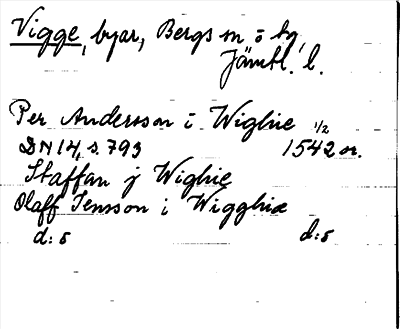 Vigge, byar, Bergs sn o by,
Jämtl. l.
Per Andersson i Wighie 1/2
DN 14, s. 793 1542 or.
Staffan j Wighie
Olaff Jensson i Wigghiæ
d:o d:o